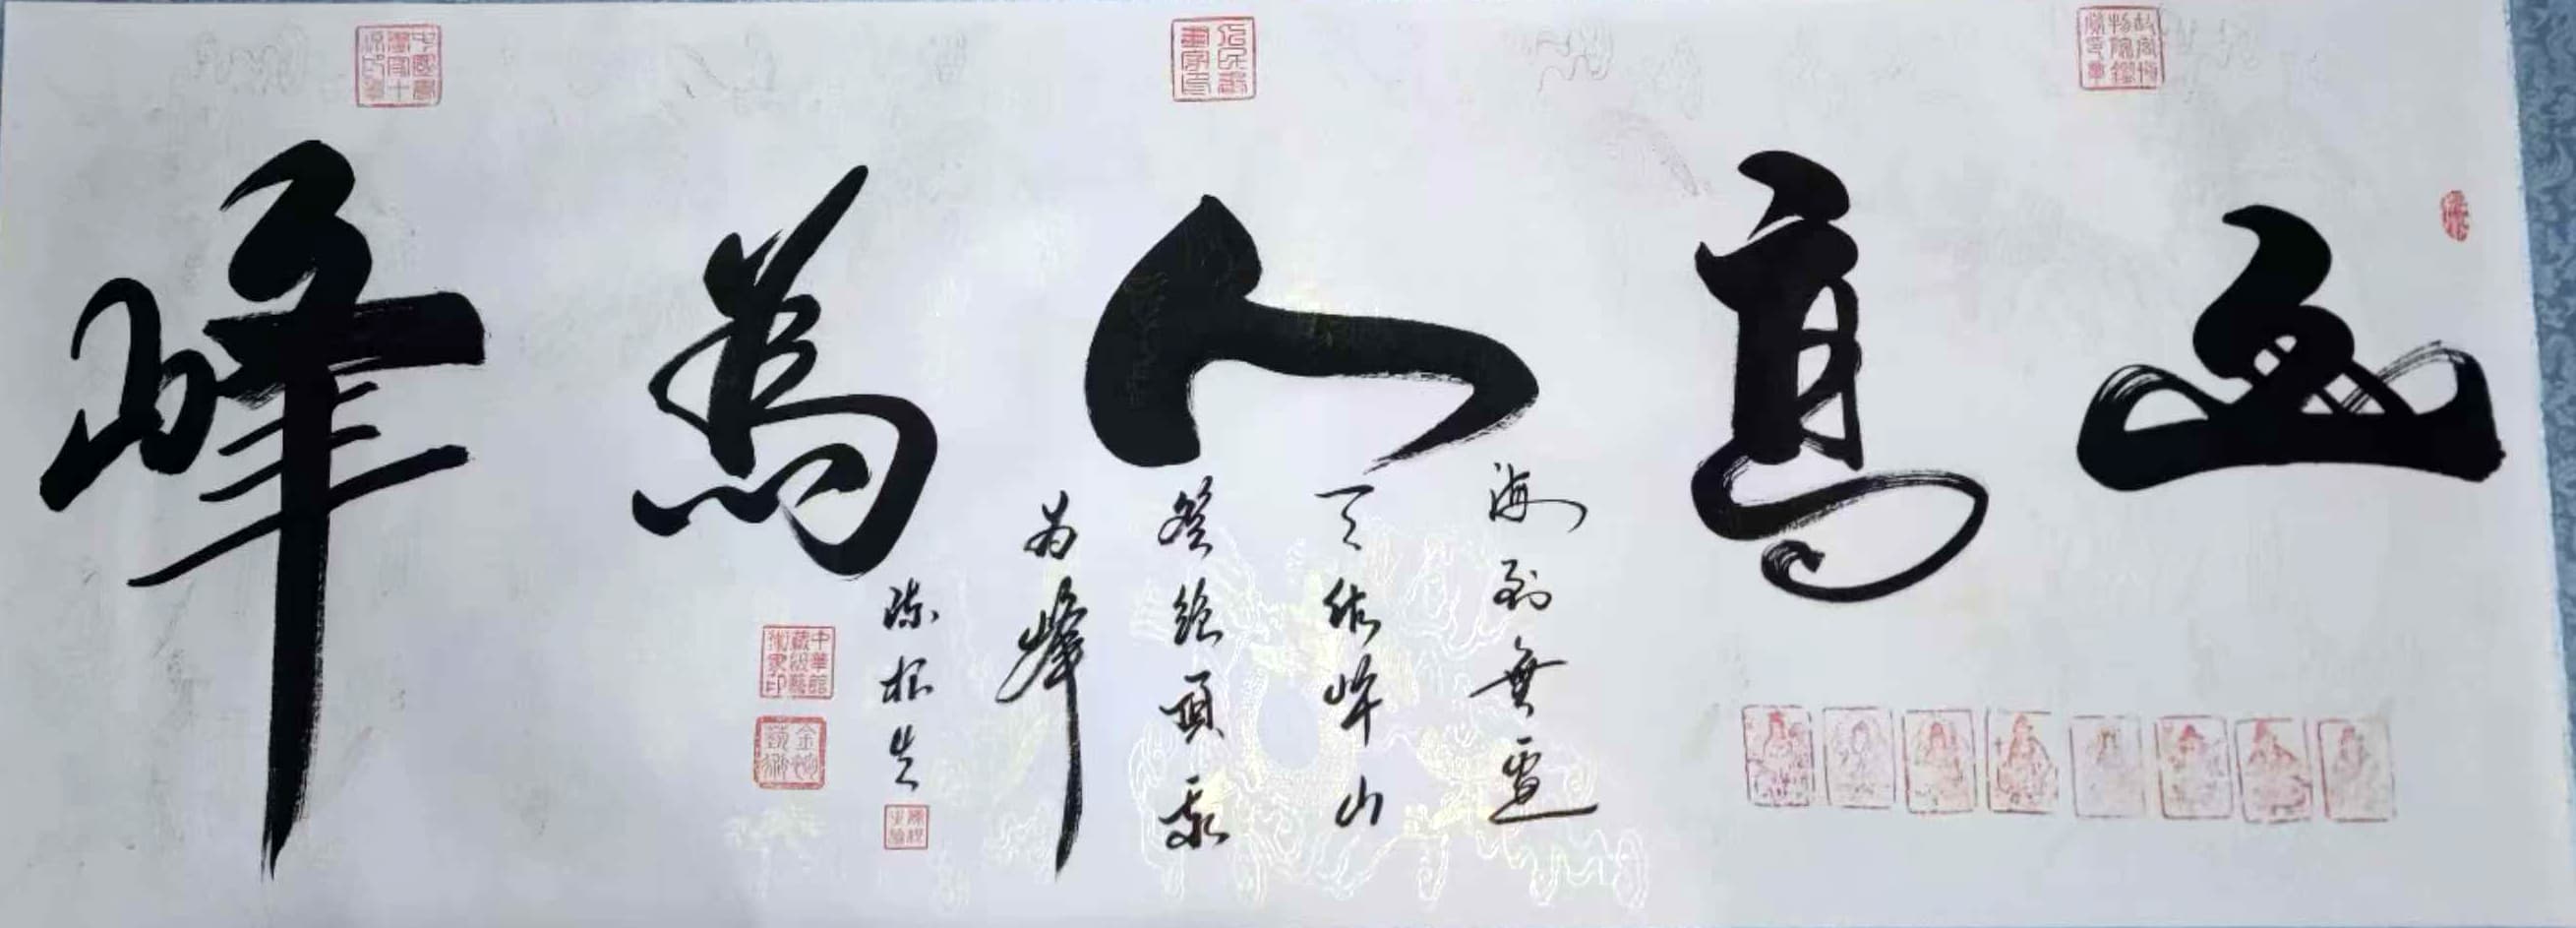 山高人為峰
海到無邊
天作岸山
登絶頂我
为峰
陈根生
中華館
藏級藝
術家印